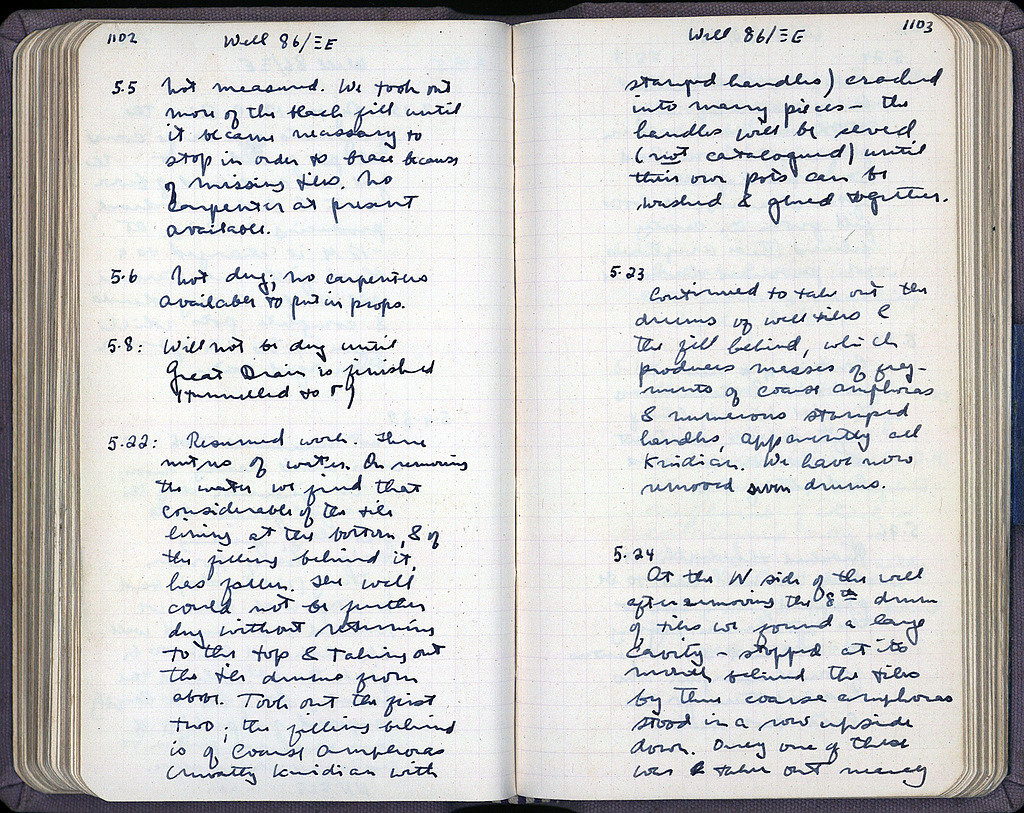 1102
Well 86/ΞE
5.5 Not measured. We took out
more of the black fill until
it became necessary to
stop in order to brace because
of missing tiles. No
carpenter at present
available.
5.6 Not dug; no carpenters
available to put in props.
5.8: Will not be dug until
Great Drain is finished
(tunnelled to 5)
5.22: Resumed work. Three
metres of water. On removing
the water we find that
considerable of the tile
lining at the bottom, & of
the filling behind it,
has fallen. The well
could not be further
dug without returning
to the top & taking out
the tile drums from
above. Took out the first
two; the filling behind
is of coarse amphoras
(mostly Knidian with
1103
Well 86/ΞE
stamped handles) cracked
into many pieces – the
handles will be saved
(not catalogued) until
their own pots can be
washed & glued together.
5.23
Continued to take out the
drums of well tiles &
the fill behind, which
produces masses of frag-
ments of coarse amphoras
& numerous stamped
handles, apparently all
Knidian. We have now
removed seven drums.
5.24
At the W side of the well
after removing the 8th drum
of tiles we found a large
cavity – stopped at its
mouth behind the tiles
by three coarse amphoras
stood in a row upside
down. Only one of these
was taken out nearly